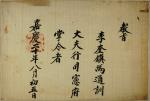 教旨
李奎鎮爲通訓
大夫行司憲府
掌令者
嘉慶二十年八月初五日